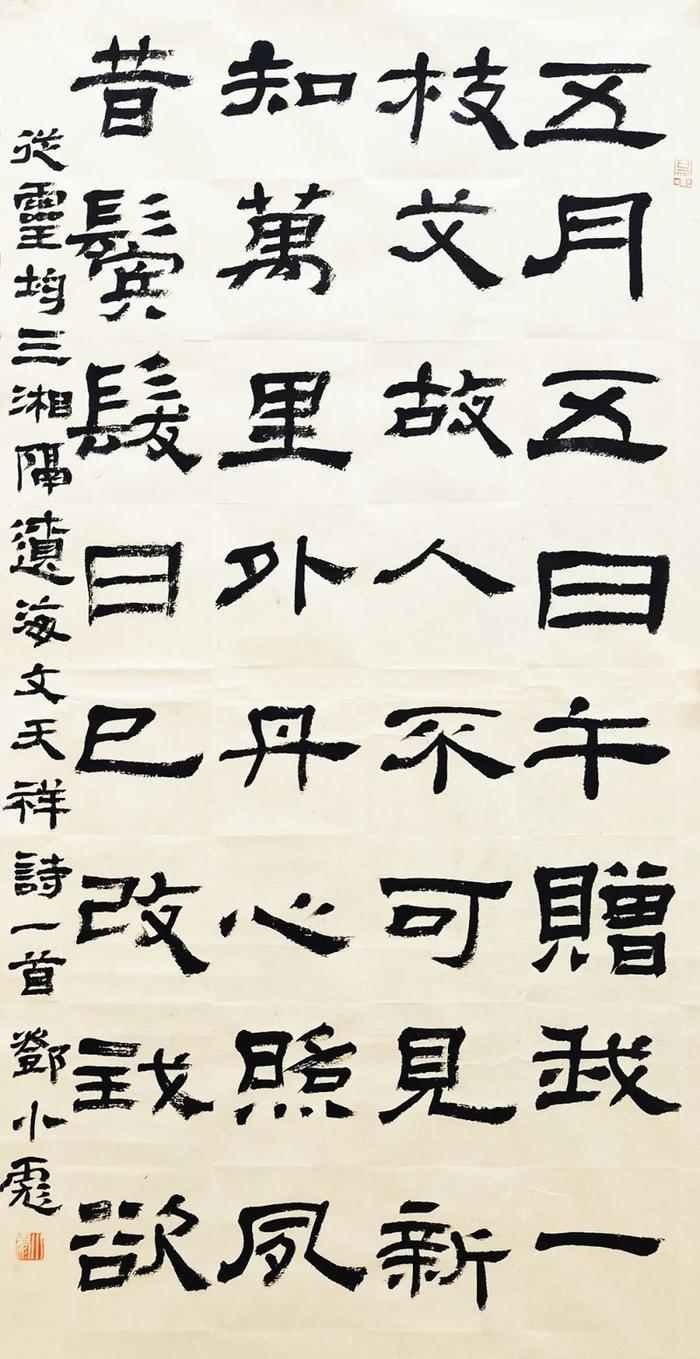 五月五日午贈我一
枝艾故人不可見新
知萬里外丹心照夙
昔鬢髮日已改我欲
從靈均三湘隔遼海文天祥詩一首鄧小彪